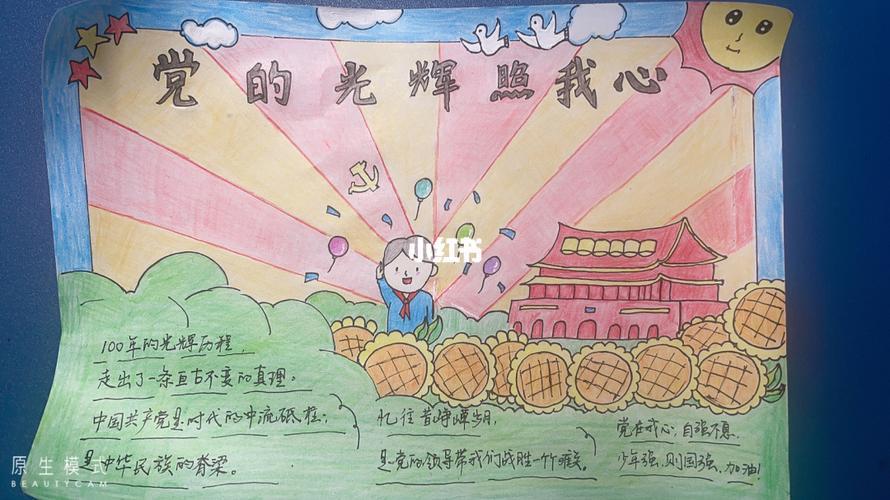 党的光辉照我心
小红书
100年的光辉历程,
走出了一条亘古不变的真理。
中国共产党是时代的中流砥柱;
是中华民族的脊梁。
忆往昔峥嵘岁月,
是党的领导带我们战胜一个个难关。
党在我心,自强不息,
少年强,则国强,加油!
原生模式
BEAUTYCAM